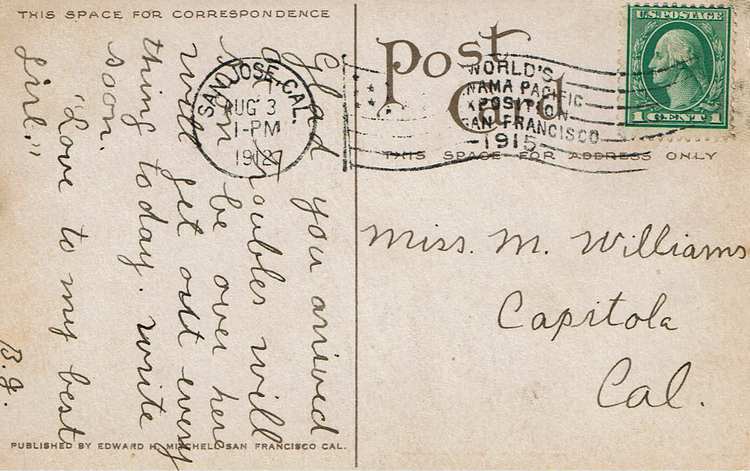 THIS SPACE FOR CORRESPONDENCE
Glad you arrived
troubles will
soon be over here
will get out every
thing today. write
soon.
"Love to my best
girl."
B.J.
PUBLISHED BY EDWARD H. MITCHELL SAN FRANCISCO CAL.
Post Card
SAN JOSE, CAL.
AUG 3
1-PM
1912
WORLD'S
PANAMA PACIFIC
EXPOSITION
SAN FRANCISCO
1915
U.S. POSTAGE
1 CENT 1
THIS SPACE FOR ADDRESS ONLY
Miss. M. Williams
Capitola
Cal.